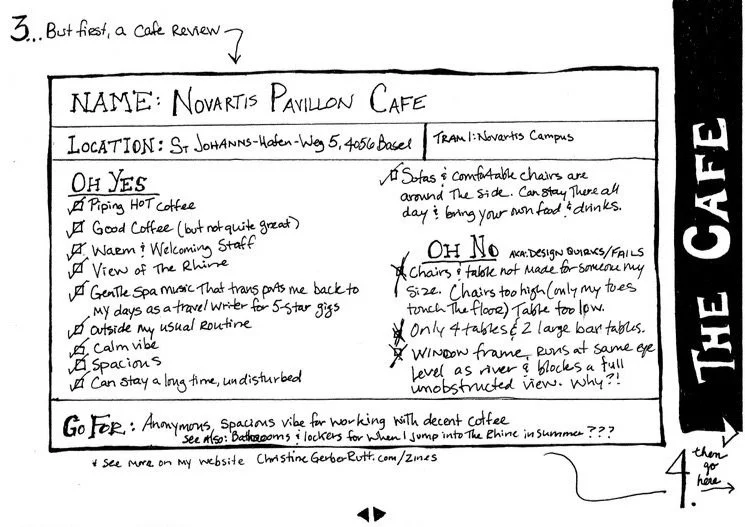 3... But first, a cafe review
NAME: NOVARTIS PAVILLON CAFE
LOCATION: ST JOHANNS-Hafen-Weg 5, 4056 Basel
TRAM 1: Novartis Campus
OH YES
Piping HOT coffee
Good Coffee (but not quite great)
Warm & Welcoming Staff
View of The Rhine
Gentle spa music That transports me back to
my days as a travel writer for 5-star gigs
outside my usual routine
Calm vibe
Spacious
Can stay a long time, undisturbed
Sofas & comfortable chairs are
around The side. Can stay There all
day & bring your own food & drinks.
OH NO AKA: DESIGN QUIRKS/FAILS
Chairs & table not made for someone my
size. Chairs too high (only my toes
touch The floor) Table too low.
Only 4 tables & 2 large bar tables.
WINDOW frame, runs at same eye
level as river & blocks a full
unobstructed view. Why?!
GO FOR: Anonymous, spacious vibe for working with decent coffee
see Also: Bathrooms & lockers for when I jump into The Rhine in summer???
& see more on my website ChristineGerberRutt.com/zines
THE CAFE
4. then
go
here